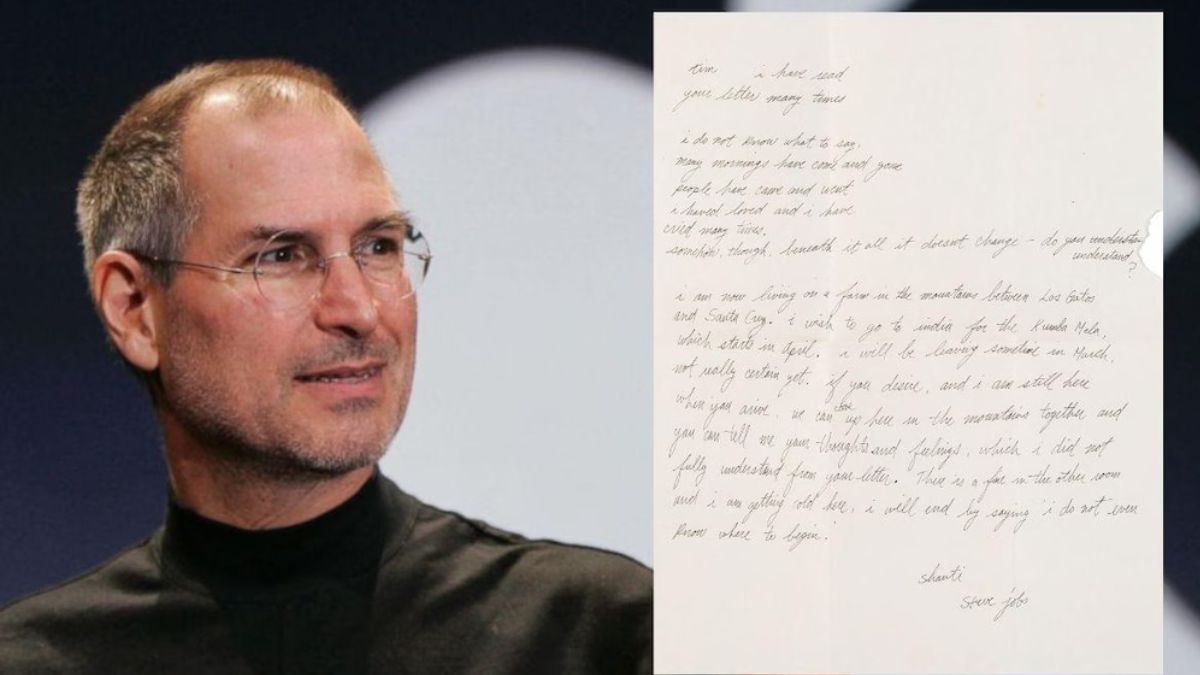 tim i have read
your letter many times
i do not know what to say.
many mornings have come and gone
people have came and went
i haved loved and i have
cried many times.
somehow, though, beneath it all it doesnt change - do you understa
understand
?
i am now living on a farm in the mountains between Los Gatos
and Santa Cruz. i wish to go to india for the Kumba Mela,
which starts in april. i will be leaving sometime in March,
not really certain yet. if you desire, and i am still here
when you arive, we can up here in the mountains together and
you can tell me your thoughts and feelings, which i did not
fully understand from your letter. There is a fire in the other room
and i am getting cold here. i will end by saying 'i do not even
know where to begin'.
shanti
steve jobs